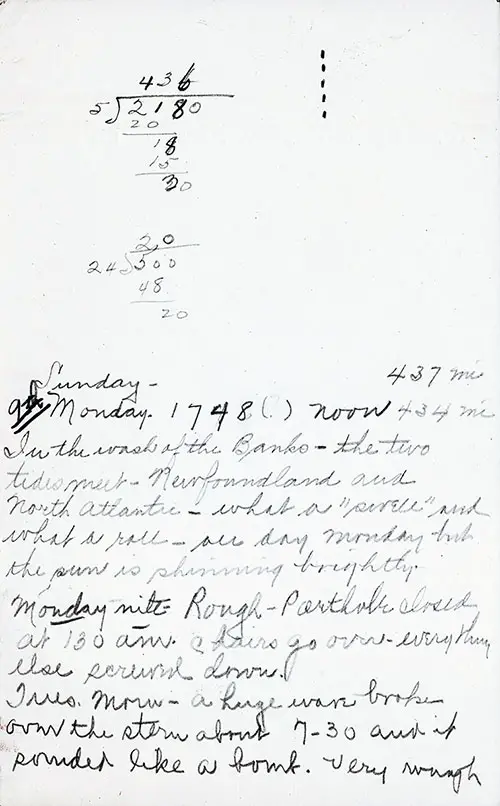 436
5)2180
20
18
15
30
20
24)500
48
20
Sunday - 437 mi
9th Monday. 1748(.) noon 434 mi
In the wash of the Banks - the two
tides meet - Newfoundland and
North Atlantic - what a "swell" and
what a roll - all day Monday but
the sun is shinning brightly.
Monday nite - Rough - Porthole closed
at 130 am. Chairs go over - everything
else screwed down.
Tues. Morn - a huge wave broke
over the stern about 7-30 and it
sounded like a bomb. Very rough